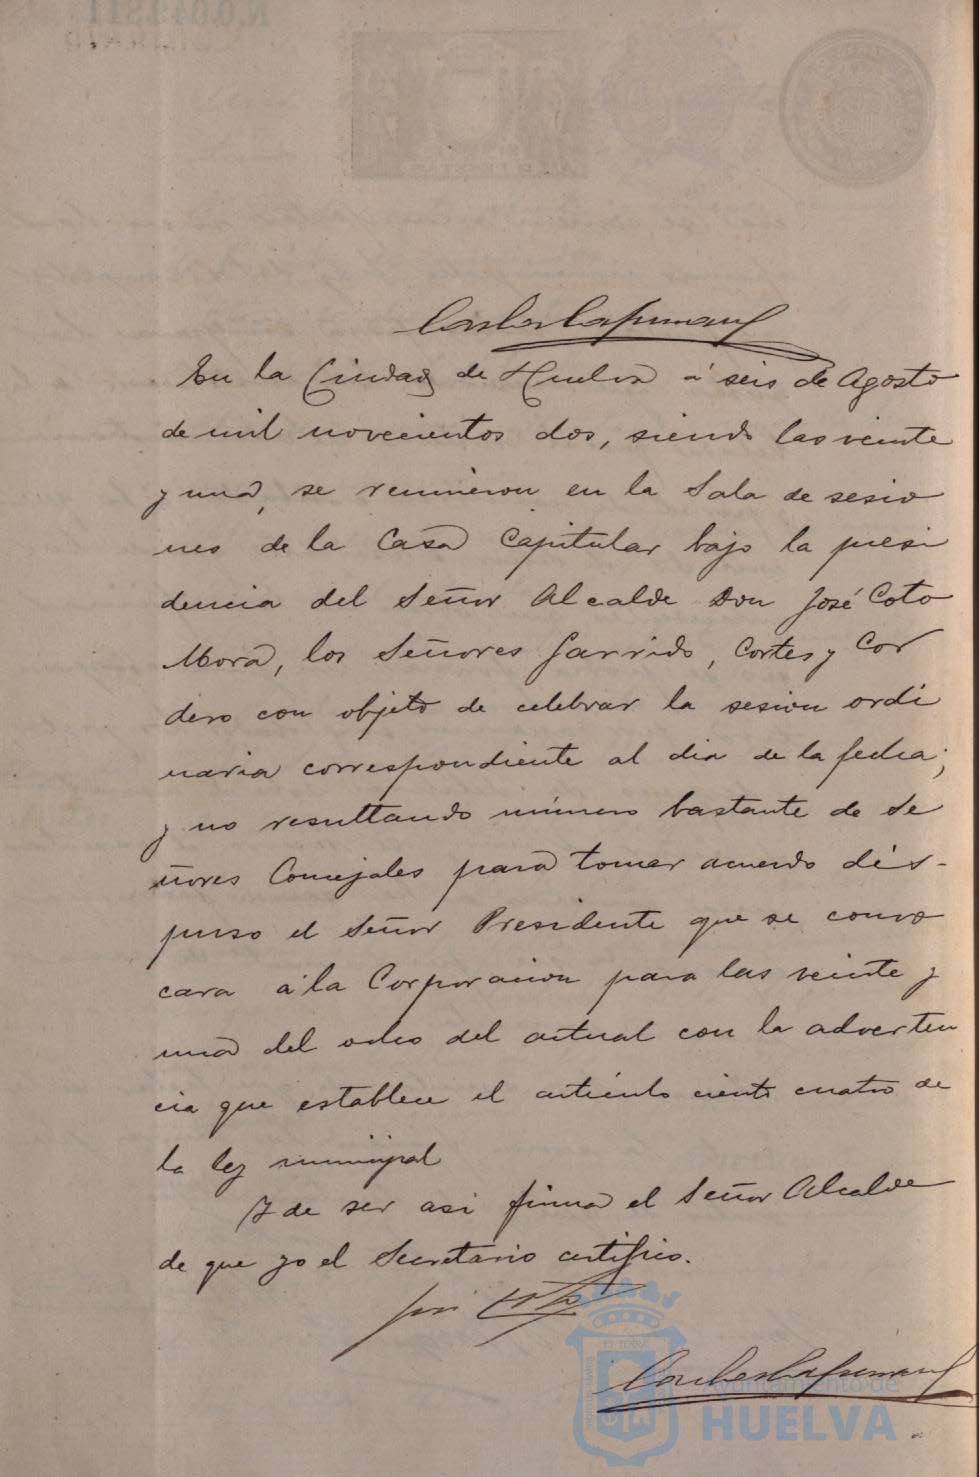 En la Ciudad de Huelva á seis de Agosto
de mil novecientos dos, siendo las veinte
y una, se reunieron en la Sala de sesio
nes de la Casa Capitular bajo la presi
dencia del Señor Alcalde Don José Coto
Mora, los Señores Garrido, Cortes y Cor
dero con objeto de celebrar la sesion ordi
naria correspondiente al dia de la fecha;
y no resultando número bastante de Se
ñores Concejales para tomar acuerdo dis-
puso el Señor Presidente que se convo
cara á la Corporacion para las veinte y
una del ocho del actual con la adverten
cia que establece el artículo ciento cuatro de
la ley municipal
Y de ser asi firma el Señor Alcalde
de que yo el Secretario certifico.
José Coto
Ayuntamiento de
HUELVA